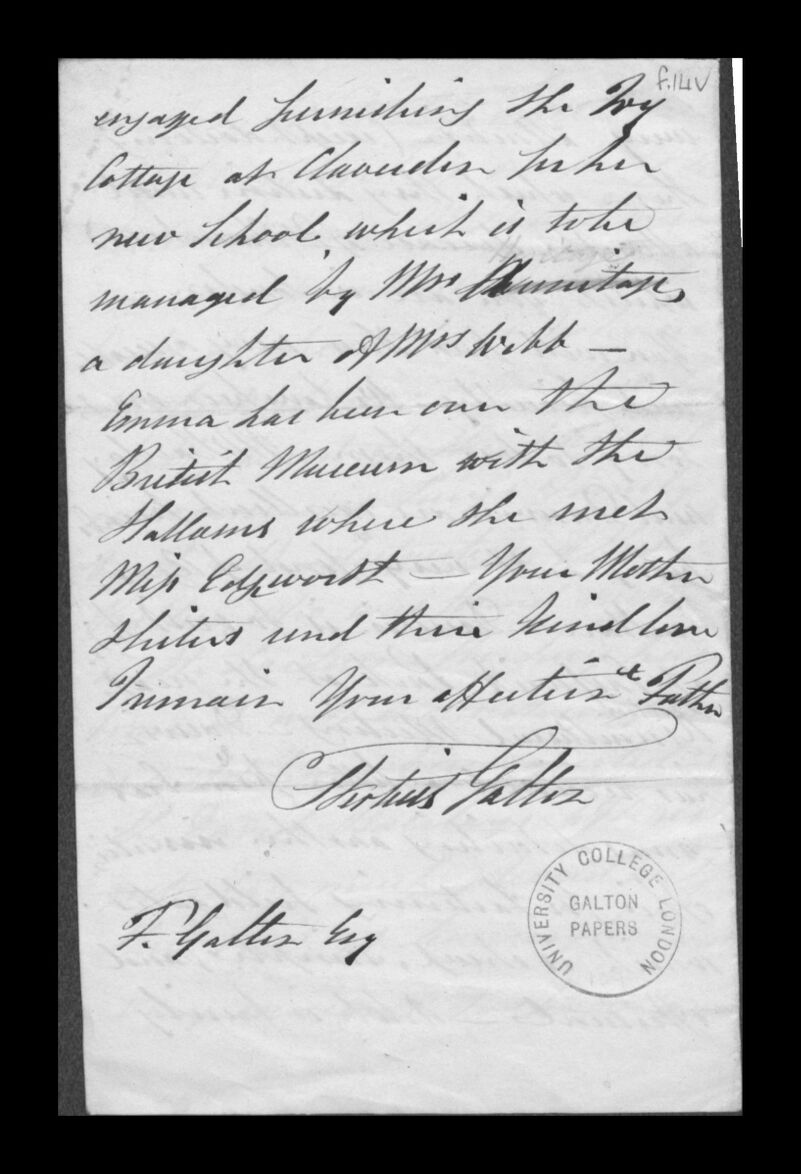 f.14v
engaged furnishing the Ivy
Cottage at Claverdon for her
new School which is to be
managed by Mrs
a daughter of Mrs Webb —
Emma has been over the
British Museum with the
Hallams where she met
Miss Edgeworth — Your Mother
& Sisters send their kind love
I remain Your affection.te Father
S Tertius Galton
F. Galton Esq
UNIVERSITY COLLEGE LONDON
GALTON
PAPERS